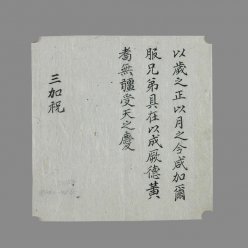 以歲之正以月之令咸加爾
服兄弟具在以成厥德黃
耇無疆受天之慶
三加祝